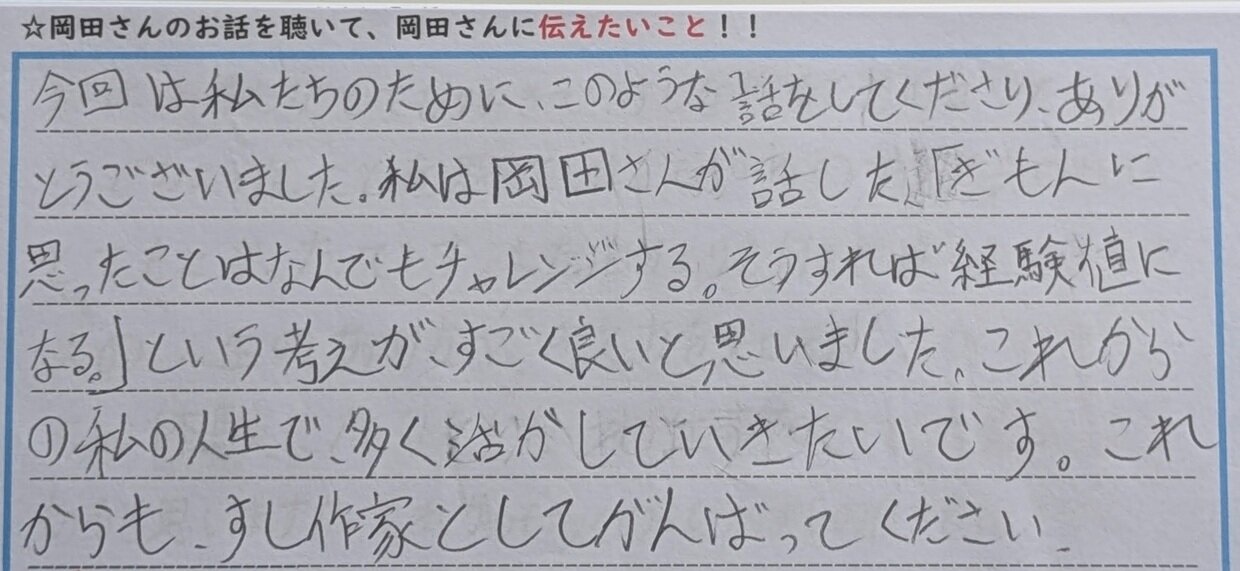 ☆岡田さんのお話を聴いて、岡田さんに伝えたいこと！！
今回は私たちのために、このような話をしてくださり、ありが
とうございました。私は岡田さんが話した、「ぎもんに
思ったことはなんでもチャレンジする。そうすれば経験値に
なる。」という考えが、すごく良いと思いました。これから
の私の人生で、多く活がしていきたいです。これ
からも、すし作家としてがんばってください。